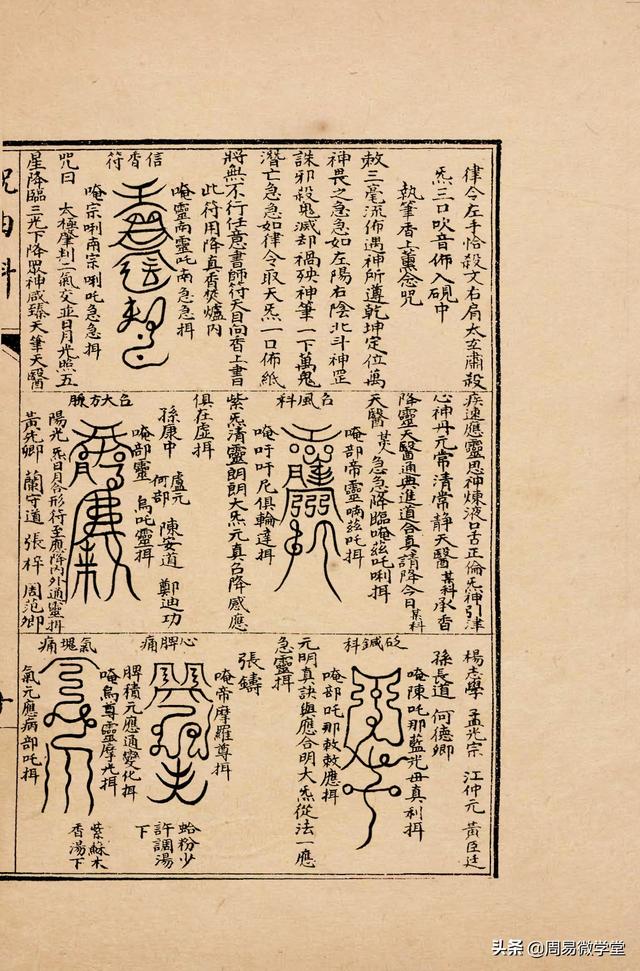 律令左手恰殺文右肩太玄肅殺
炁三口吹音佈入硯中
執筆香上薰念咒
敕三毫流佈遇神所遵乾坤定位萬
神畏之急急如左陽右陰北斗神罡
誅邪殺鬼滅却禍殃神筆一下萬鬼
潛亡急急如律令取天炁一口佈紙
將無不行任意書師符天目向香上書
此符用降真香焚爐內
唵靈南靈吒南急急揖
信香符
唵宗唎南宗唎吒急急揖
咒曰 太極肇判二氣交並日月光照五
星降臨三光下降眾神咸臻天筆天醫
疾速應靈思神煉液口舌正倫炁神引津
心神丹元常清常靜天醫某科承香
降靈天醫通與進道合真請降今日某科
天醫某急急降臨唵茲吒唎揖
唵部帝靈喃茲吒揖
召風科
唵吁吁尼俱輪達揖
紫炁清靈朗朗大炁元真召降感應
俱在虛揖
盧元 陳安道 鄭迪功
孫康中 何部
唵部靈 烏吒靈揖
召大方脉
陽光炁日月合形行至應降內外通靈揖
黃先卿 蘭守道 張梓 周范卿
楊志學 孟光宗 江仲元 黃臣廷
孫長道 何德卿
唵陳吒那藍光毋真利揖
砭鍼科
唵部吒那敕敕應揖
元明真訣與應合明大炁從法一應
急靈揖
張鑄
唵帝摩羅尊揖
心脾痛
脾積元應通變化揖
蛤粉少
許調湯
下
唵烏尊靈摩光揖
氣塊痛
氣元應病部吒揖
紫蘇木
香湯下
咒由科
头条 @周易微学堂